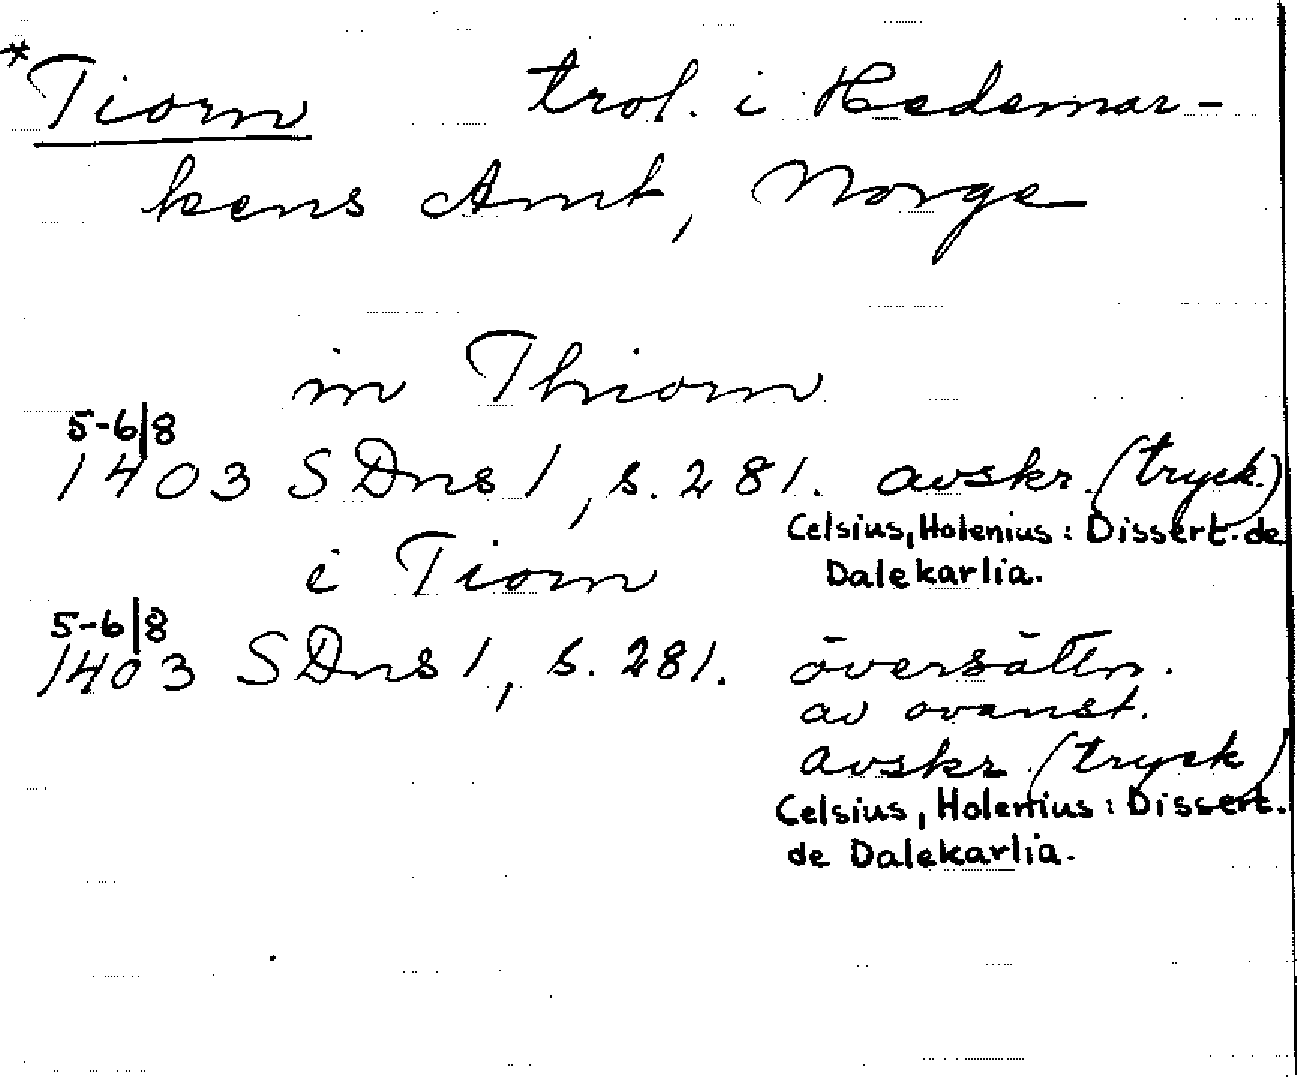 *Tiorn trol. i Hedemar-
kens Amt, Norge
in Thiorn
5-6/8
1403 SDns 1, s. 281. avskr. (tryck.)
Celsius, Holenius: Dissert. de
Dalekarlia.
i Tiorn
5-6/8
1403 SDns 1, s. 281. översättn.
av ovanst.
avskr. (tryck)
Celsius, Holenius: Dissert.
de Dalekarlia.